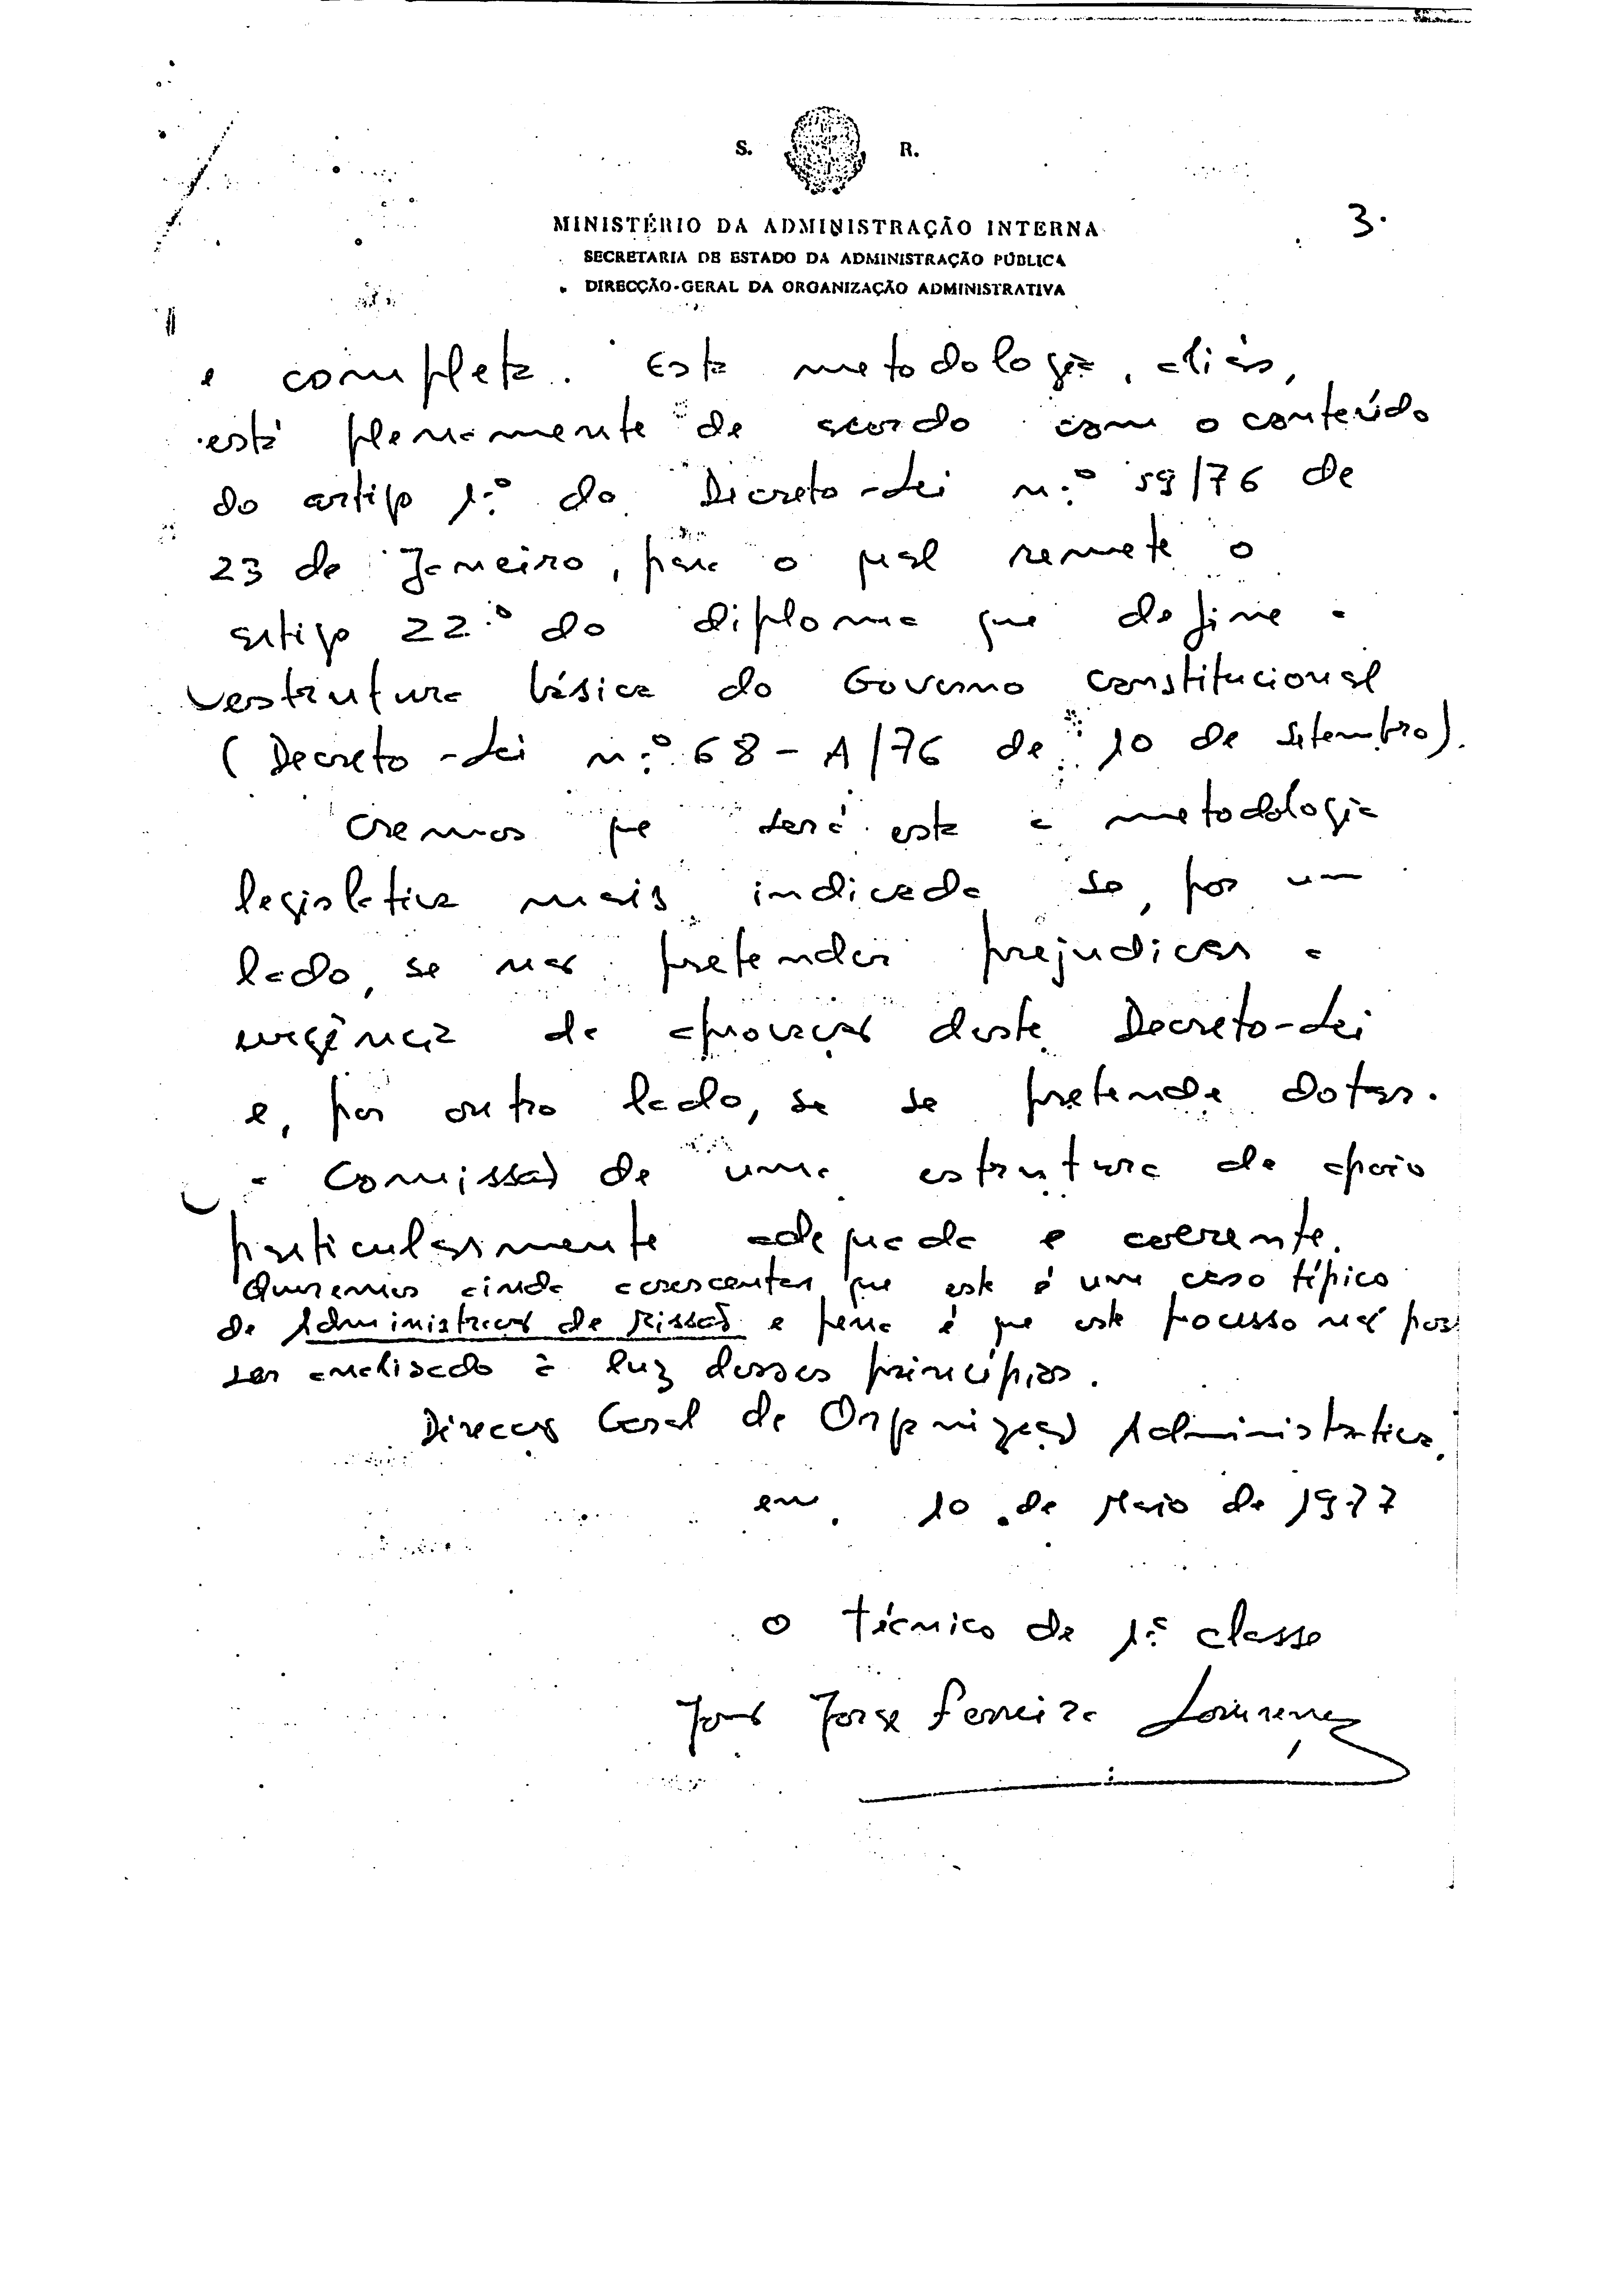 S. R.
MINISTÉRIO DA ADMINISTRAÇÃO INTERNA
SECRETARIA DE ESTADO DA ADMINISTRAÇÃO PÚBLICA
DIRECÇÃO-GERAL DA ORGANIZAÇÃO ADMINISTRATIVA
3.
e completa. Esta metodologia, aliás,
está plenamente de acordo com o conteúdo
do artigo 1.º do Decreto-Lei n.º 59/76 de
23 de Janeiro, para o qual remete o
artigo 22.º do diploma que define a
estrutura básica do Governo constitucional
(Decreto-Lei n.º 68-A/76 de 10 de Setembro).
Cremos que será esta a metodologia
legislativa mais indicada se, por um
lado, se não pretender prejudicar a
urgência da aprovação deste Decreto-Lei
e, por outro lado, se se pretende dotar
a Comissão de uma estrutura de apoio
particularmente adequada e coerente.
Queremos ainda acrescentar que este é um caso típico
de Administração de Missão e pena é que este processo não
ser analisado à luz desses princípios.
Direcção Geral da Organização Administrativa,
em, 10 de Maio de 1977
O técnico de 1.ª classe
João Jorge Ferreira Lourenço